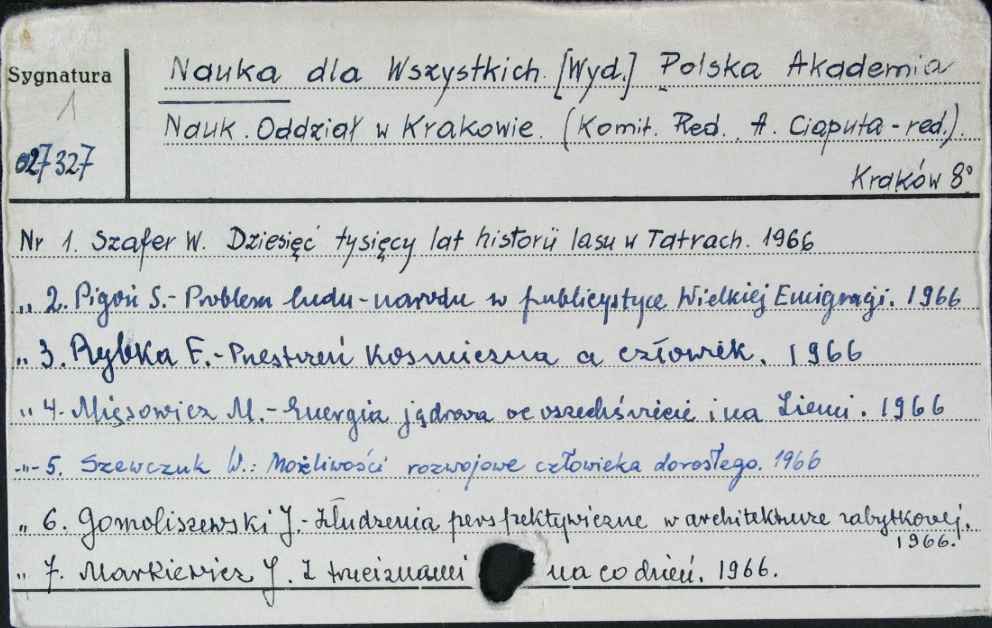 Sygnatura
1
027327
Nauka dla Wszystkich. [Wyd.] Polska Akademia
Nauk. Oddział w Krakowie. (Komit. Red. A. Ciaputa - red.).
Kraków 8°
Nr 1. Szafer W. Dziesięć tysięcy lat historii lasu w Tatrach. 1966
„ 2. Pigoń S. - Problem ludu - narodu w publicystyce Wielkiej Emigracji. 1966
„ 3. Rybka E. - Przestrzeń kosmiczna a człowiek. 1966
„ 4. Mięsowicz M. - Energia jądrowa we wszechświecie i na Ziemi. 1966
-„- 5. Szewczuk W.: Możliwości rozwojowe człowieka dorosłego. 1966
„ 6. Gomoliszewski J. - Złudzenia perspektywiczne w architekturze zabytkowej.
1966.
„ 7. Markiewicz J. Z truciznami na co dzień. 1966.